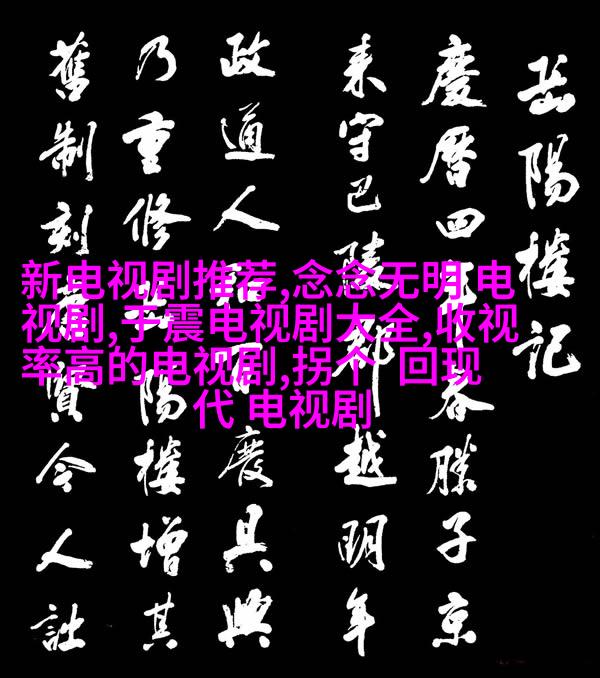 岳陽樓記
慶曆四年春滕子京
来守巴陵郡越明年
政通人和百廢具興
乃重修岳陽樓增其
舊制刻唐賢今人
新电视剧推荐,念念无明 电
视剧,于震电视剧大全,收视
率高的电视剧,拐个 回现
代 电视剧